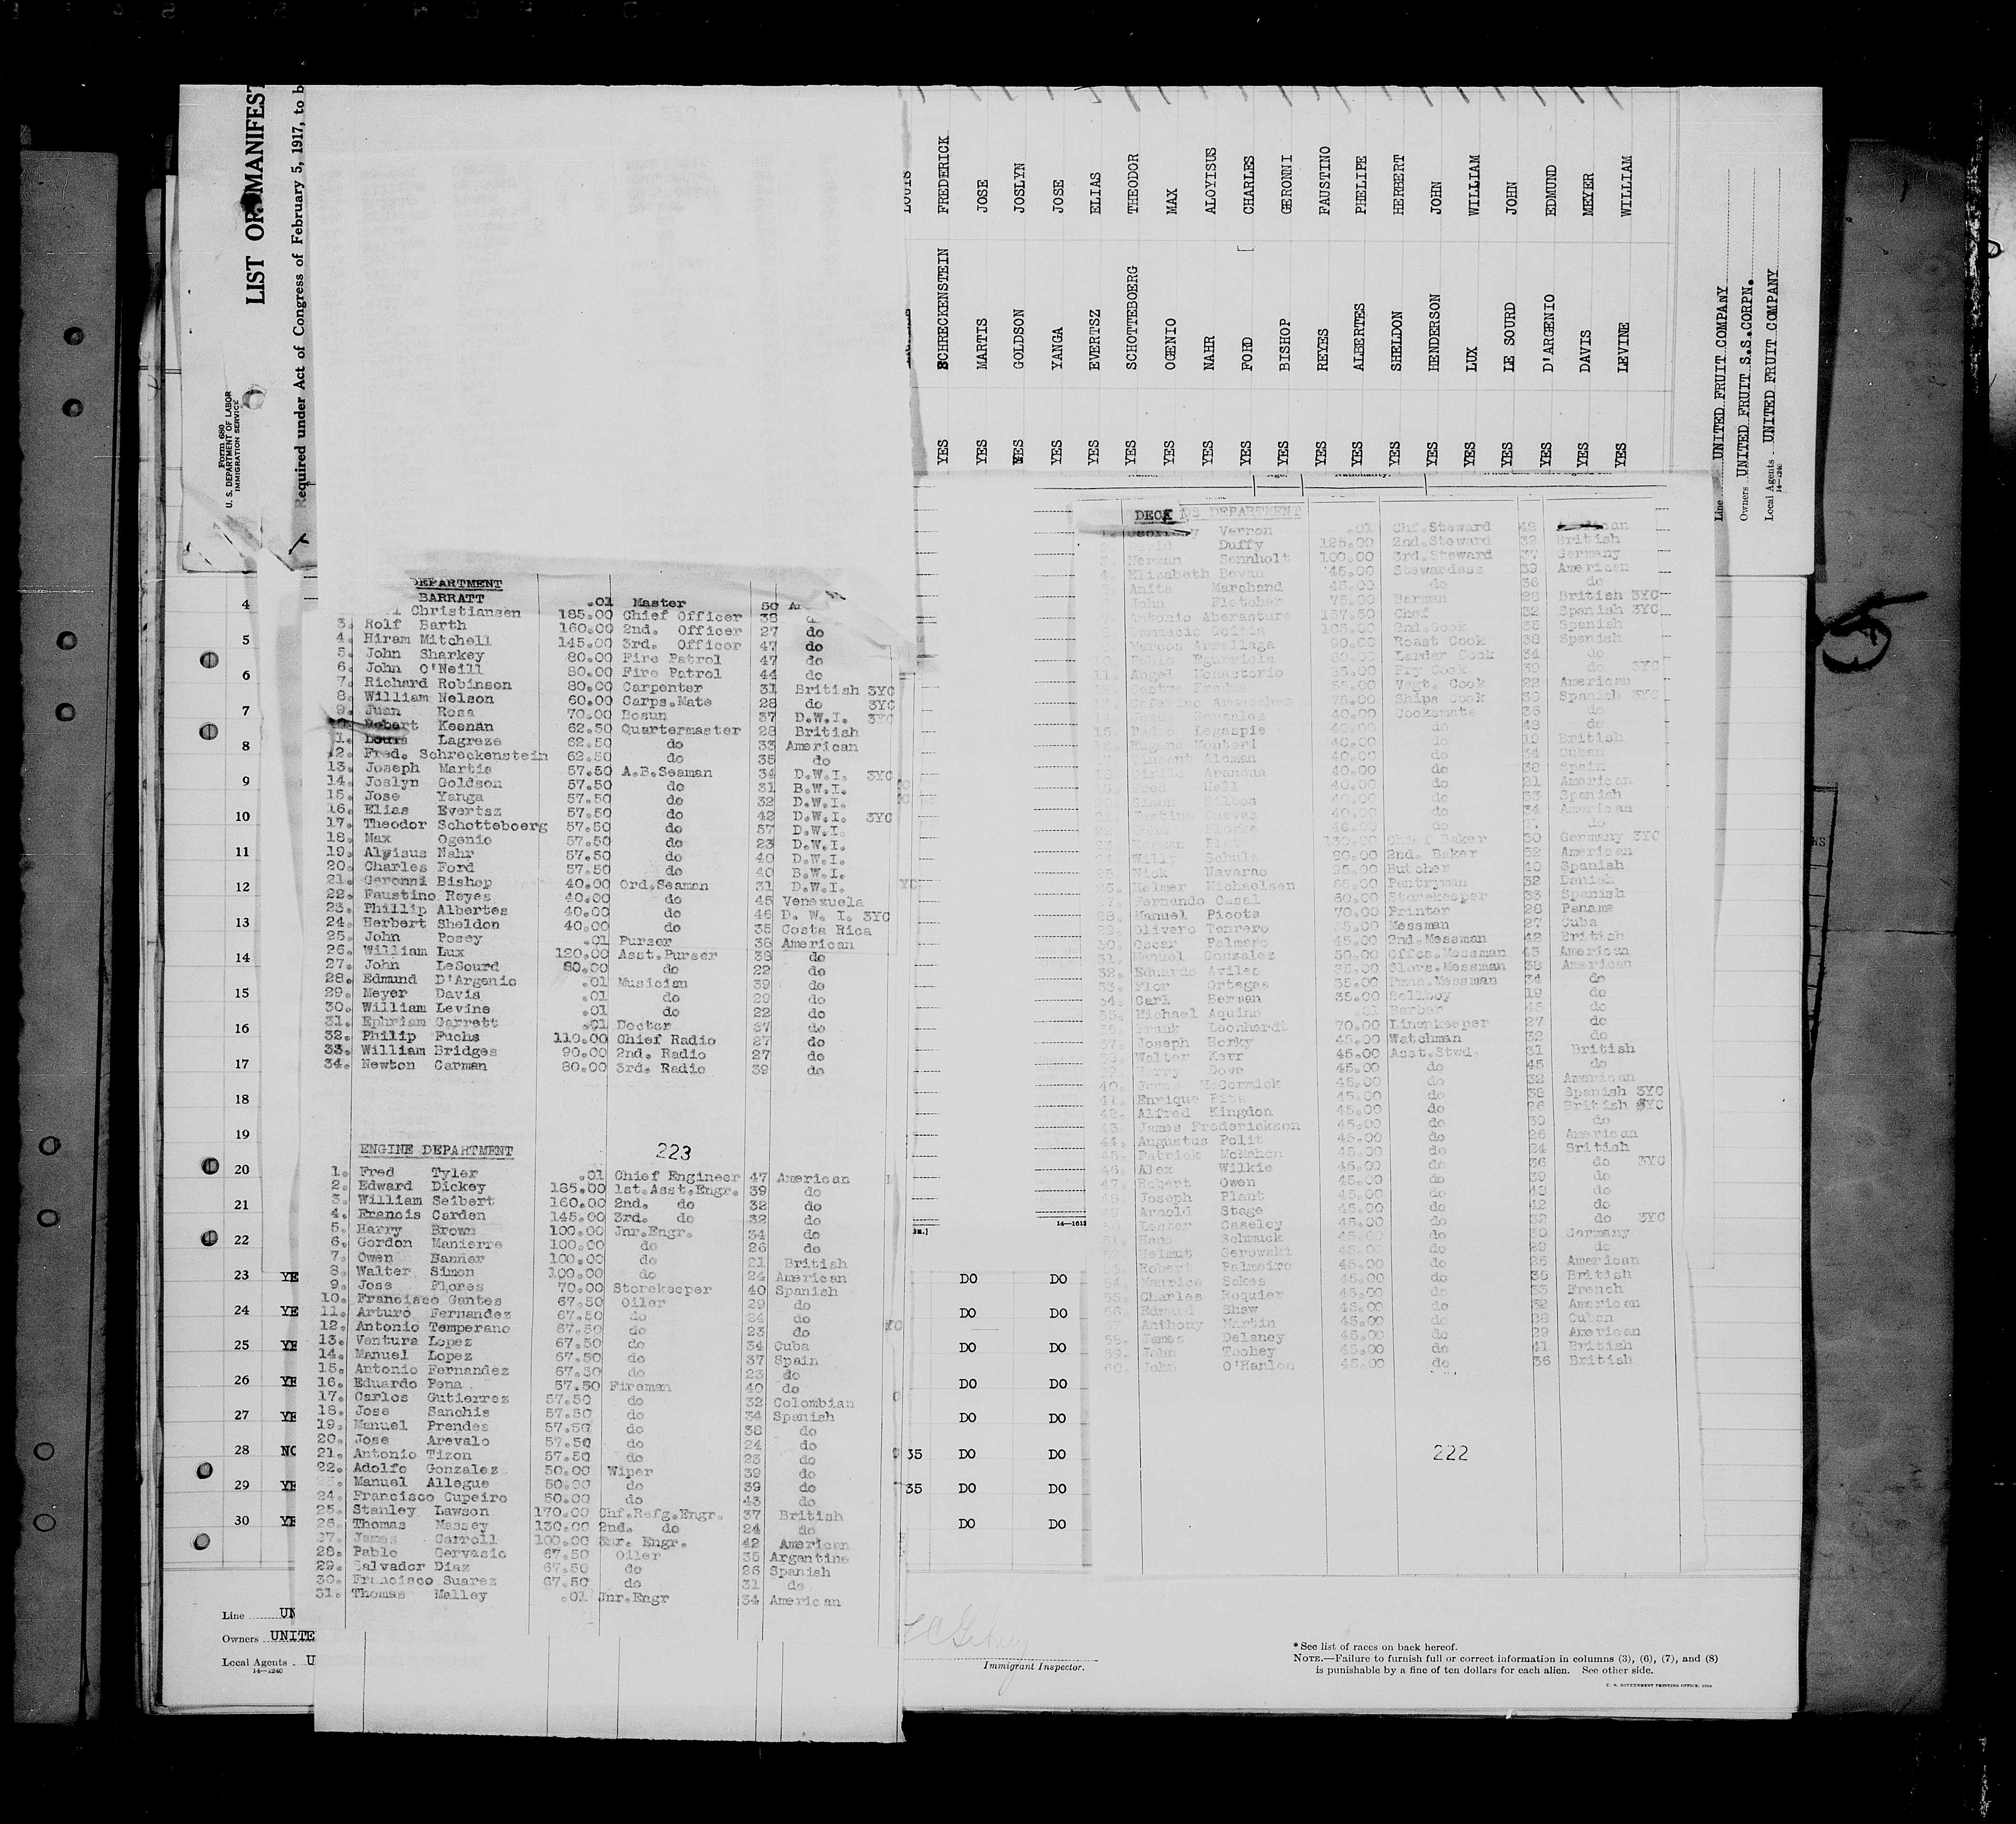 LIST OR MANIFEST
Required under Act of Congress of February 5, 1917, to b
Form 680
U. S. DEPARTMENT OF LABOR
IMMIGRATION SERVICE
LOUIS
YES SCHRECKENSTEIN FREDERICK
YES MARTIS JOSE
YES GOLDSON JOSLYN
YES YANGA JOSE
YES EVERTSZ ELIAS
YES SCHOTTEBOERG THEODOR
YES OGENIO MAX
YES NAHR ALOYISUS
YES FORD CHARLES
YES BISHOP GERONNI
YES REYES FAUSTINO
YES ALBERTES PHELIPE
YES SHELDON HERBERT
YES HENDERSON JOHN
YES LUX WILLIAM
YES LE SOURD JOHN
YES D'ARGENIO EDMUND
YES DAVIS MEYER
YES LEVINE WILLIAM
Line UNITED FRUIT COMPANY
Owners UNITED FRUIT S.S.CORPN.
Local Agents UNITED FRUIT COMPANY
14-1240
DEPARTMENT
BARRATT .01 Master 50
Christiansen 185.00 Chief Officer 38
3. Rolf Barth 160.00 2nd. Officer 27 do
4. Hiram Mitchell 145.00 3rd. Officer 47 do
5. John Sharkey 80.00 Fire Patrol 47 do
6. John O'Neill 80.00 Fire Patrol 44 do
7. Richard Robinson 80.00 Carpenter 31 British 3YC
8. William Nelson 60.00 Carps.Mate 28 do 3YC
9. Juan Rosa 70.00 Bosun 37 D.W.I. 3YC
Robert Keenan 62.50 Quartermaster 28 British
1. Louis Lagreze 62.50 do 33 American
12. Fred. Schreckenstein 62.50 do 35 do
13. Joseph Martis 57.50 A.B.Seaman 34 D.W.I. 3YC
14. Joslyn Goldson 57.50 do 31 B.W.I.
15. Jose Yanga 57.50 do 32 D.W.I.
16. Elias Evertsz 57.50 do 42 D.W.I. 3YC
17. Theodor Schotteboerg 57.50 do 57 D.W.I.
18. Max Ogenio 57.50 do 23 D.W.I.
19. Alyisus Nahr 57.50 do 40 D.W.I.
20. Charles Ford 57.50 do 40 B.W.I.
21. Geronni Bishop 40.00 Ord.Seaman 31 D.W.I.
22. Faustino Reyes 40.00 do 45 Venezuela
23. Phillip Albertes 40.00 do 46 D. W. I. 3YC
24. Herbert Sheldon 40.00 do 35 Costa Rica
25. John Posey .01 Purser 36 American
26. William Lux 120.00 Asst.Purser 38 do
27. John LeSourd 80.00 do 22 do
28. Edmund D'Argenio .01 Musician 39 do
29. Meyer Davis .01 do 29 do
30. William Levine .01 do 22 do
31. Ephriam Garrett .01 Doctor 37 do
32. Philip Fuchs 110.00 Chief Radio 27 do
33. William Bridges 90.00 2nd. Radio 27 do
34. Newton Carman 80.00 3rd. Radio 39 do
ENGINE DEPARTMENT 223
1. Fred Tyler .01 Chief Engineer 47 American
2. Edward Dickey 185.00 1st.Asst.Engr. 39 do
3. William Seibert 160.00 2nd. do 32 do
4. Francis Carden 145.00 3rd. do 32 do
5. Harry Brown 100.00 Jnr.Engr. 34 do
6. Gordon Manierre 100.00 do 26 do
7. Owen Banner 100.00 do 21 British
8. Walter Simon 100.00 do 24 American
9. Jose Flores 70.00 Storekeeper 40 Spanish
10. Francisco Gantes 67.50 Oiler 29 do
11. Arturo Fernandez 67.50 do 24 do
12. Antonio Temperano 67.50 do 23 do
13. Ventura Lopez 67.50 do 34 Cuba
14. Manuel Lopez 67.50 do 37 Spain
15. Antonio Fernandez 67.50 do 23 do
16. Eduardo Pena 57.50 Fireman 40 do
17. Carlos Gutierrez 57.50 do 32 Colombian
18. Jose Sanchis 57.50 do 34 Spanish
19. Manuel Prendes 57.50 do 38 do
20. Jose Arevalo 57.50 do 24 do
21. Antonio Tizon 57.50 do 23 do
22. Adolfo Gonzalez 50.00 Wiper 39 do
Manuel Allegue 50.00 do 39 do
24. Francisco Cupeiro 50.00 do 43 do
25. Stanley Lawson 170.00 Chf.Refg.Engr. 37 British
26. Thomas Massey 130.00 2nd. do 24 do
27. James Carroll 100.00 Engr. 42 American
28. Pablo Gervasio 67.50 Oiler 35 Argentine
29. Salvador Diaz 67.50 do 26 Spanish
30. Francisco Suarez 67.50 do 31 do
31. Thomas Malley .01 Jnr.Engr 34 American
DECK DEPARTMENT
Vernon .01 Chf.Steward 42
Duffy 125.00 2nd.Steward 32 British
Herman Sennholt 100.00 3rd.Steward 37 Germany
4. Elizabeth Bevan 45.00 Stewardess 39 American
Anita Marchand 45.00 do 36 do
John Fletcher 75.00 Barman 28 British 3YC
Antonio Aberasture 157.50 Chef 32 Spanish 3YC
2nd.Cook 35 Spanish
Roast Cook 38 Spanish
Larder Cook 34 do
11. Angel Monasterio Fry Cook 39 do 3YC
Vegt. Cook 22 American
75.00 Ships Cook 36 Spanish 3YC
Gonzalez 40.00 Cooksmate 36 do
15. Legaspie 40.00 do 48 do
40.00 do 19 British
Vincent Aleman 40.00 do 34 Cuban
40.00 do 38 Spain
40.00 do 21 American
do 33 Spanish
do 34 American
do
Chief Baker 30 Germany 3YC
Willy Schulz 90.00 2nd. Baker 32 American
Nick Navarao 95.00 Butcher 40 Spanish
Helmer Michaelsen 65.00 Pantryman 32 Danish
Fernando Casal 60.00 Storekeeper 33 Spanish
28. Manuel Picota 70.00 Printer 26 Panama
Olivero Tenrero Messman 27 Cuba
30. Oscar Palmero 45.00 2nd.Messman 42 British
31. Manuel Gonzalez 50.00 Offcs.Messman American
32. Eduardo Aviles Messman 38 American
33. Flor Ortegas 35.00 Messman 34 do
34. Carl Berman 35.00 Bellboy 19 do
35. Michael Aquino .01 Barber 45 do
Frank Leonhardt 70.00 Linenkeeper 27 do
Joseph Horky 45.00 Watchman 32 do
Walter Kerr 45.00 Asst.Stwd. 31 British
Harry Dove 45.00 do 45 do
40. James McCormick 45.00 do 32 American
41. Enrique 45.00 do 38 Spanish 3YC
42. Alfred Kingdon 45.00 do 26 British 3YC
43. James Frederickson 45.00 do 39 do
44. Augustus Polit 45.00 do 26 American
45. Patrick McMahon 45.00 do 24 British
46. Alex Wilkie 45.00 do 36 do 3YC
47. Robert Owen 45.00 do 39 do
Joseph Plant 45.00 do do
Arnold Stage 45.00 do 42 do
Lester Caseley 45.00 do 32 do 3YC
Hans Schmuck 45.00 do 30 Germany
Helmut Gerowski 45.00 do 29 do
Robert Palmeiro 45.00 do 25 American
Maurice Sakes 45.00 do 35 British
Charles Requier 45.00 do 33 French
56. Edward Shaw 45.00 do 32 American
Anthony Martin 45.00 do 28 Cuban
58. James Delaney 45.00 do 29 American
59. John Toohey 45.00 do 41 British
60. John O'Hanlon 45.00 do 36 British
222
4
5
6
7
8
9
10
11
12
13
14
15
16
17
18
19
20
21
22
23 YE DO DO
24 YE DO DO
25 YE DO DO
26 YE DO DO
27 YE DO DO
28 NO 35 DO DO
29 YE 35 DO DO
30 YE DO DO
Line UN
Owners UNITE
Local Agents U
14-1240
Immigrant Inspector.
* See list of races on back hereof.
NOTE.—Failure to furnish full or correct information in columns (3), (6), (7), and (8)
is punishable by a fine of ten dollars for each alien. See other side.